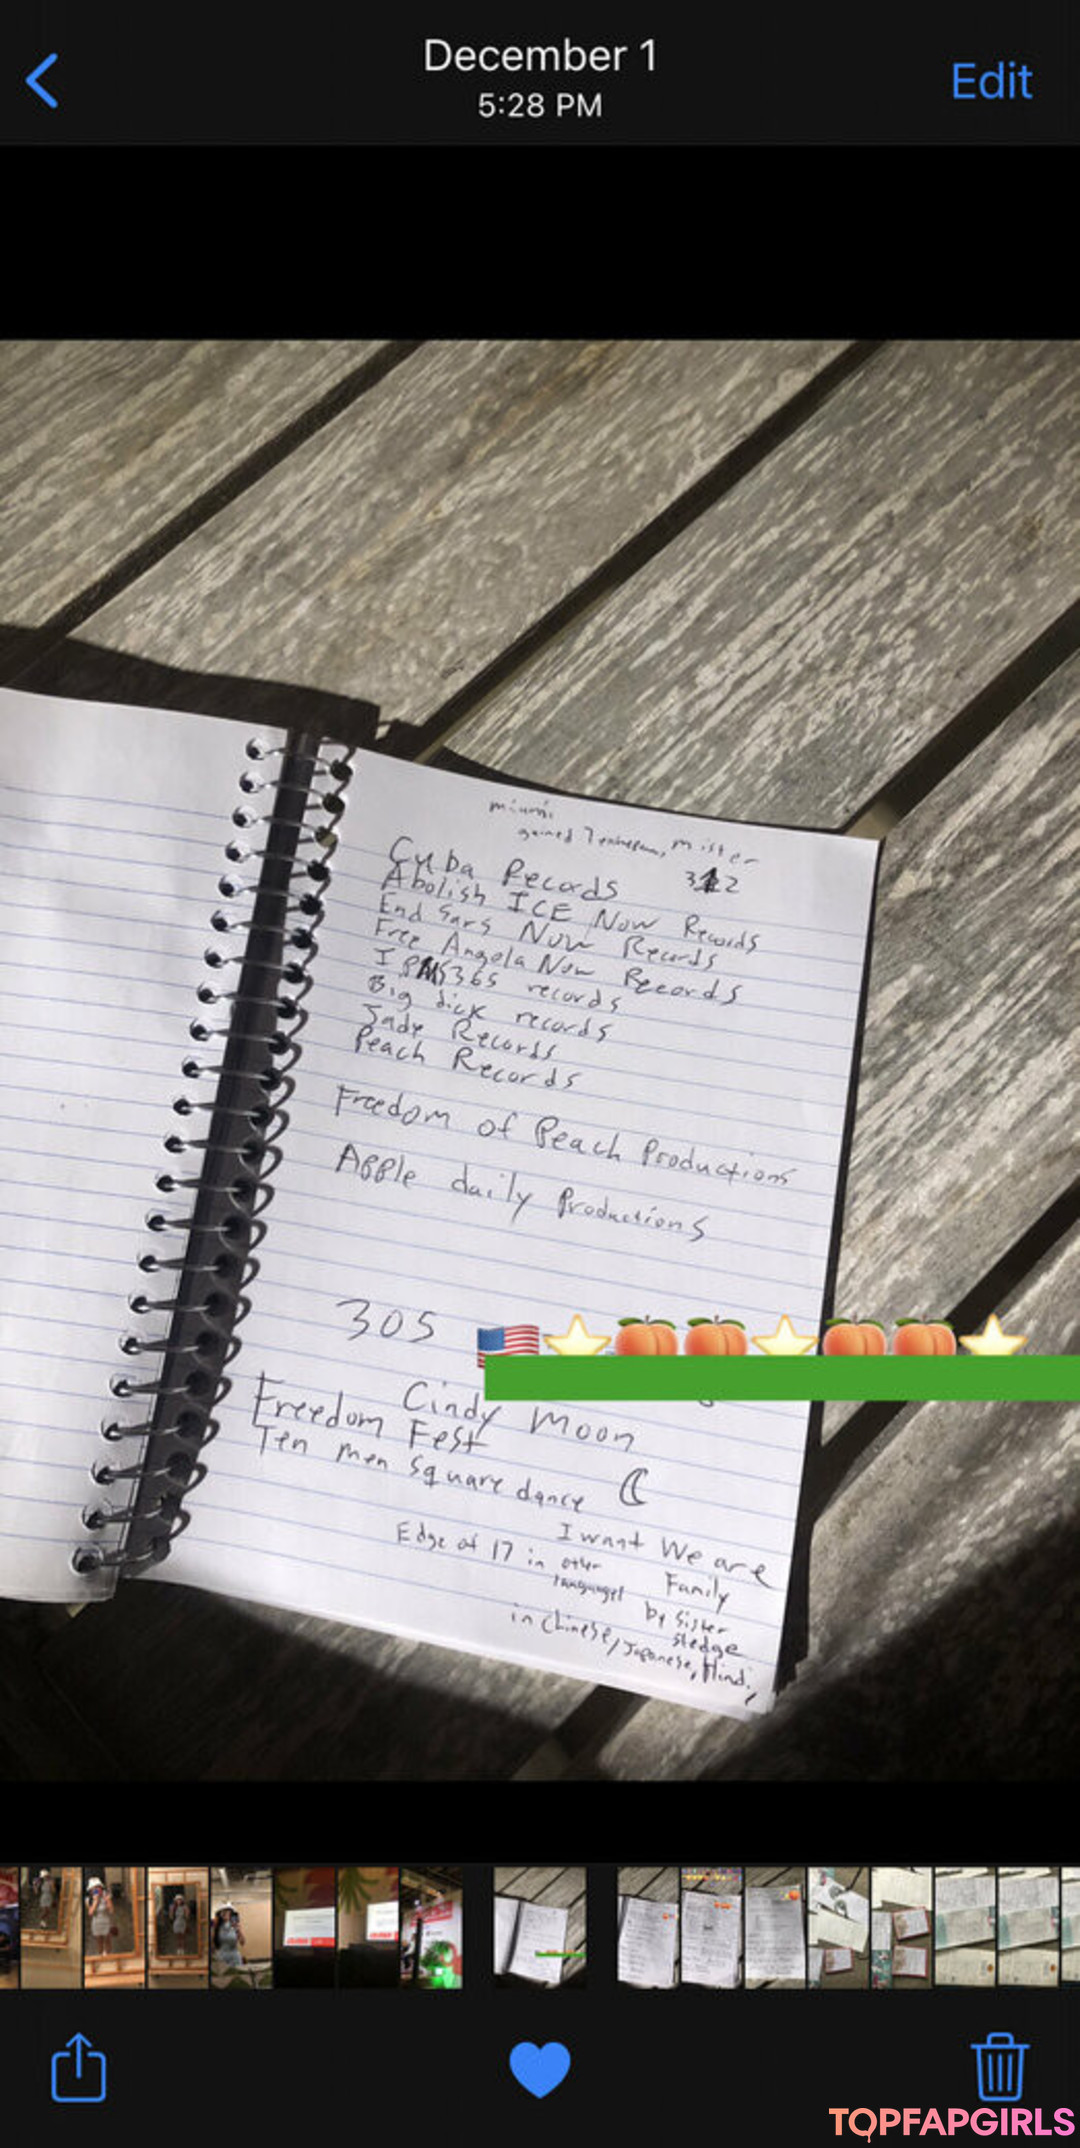 December 1
5:28 PM
Edit
miami
gained
mister
Cuba Records
312
Abolish ICE Now Records
End Sars Now Records
Free Angela Now Records
365 records
Big dick records
Jade Records
Peach Records
Freedom of Peach Productions
Apple daily Productions
305
Cindy Moon
Freedom Fest
Ten men square dance
I want We are
Family
by Sister
Sledge
Edge of 17 in other
languages
in Chinese, Japanese, Hindi,
TOPFAPGIRLS